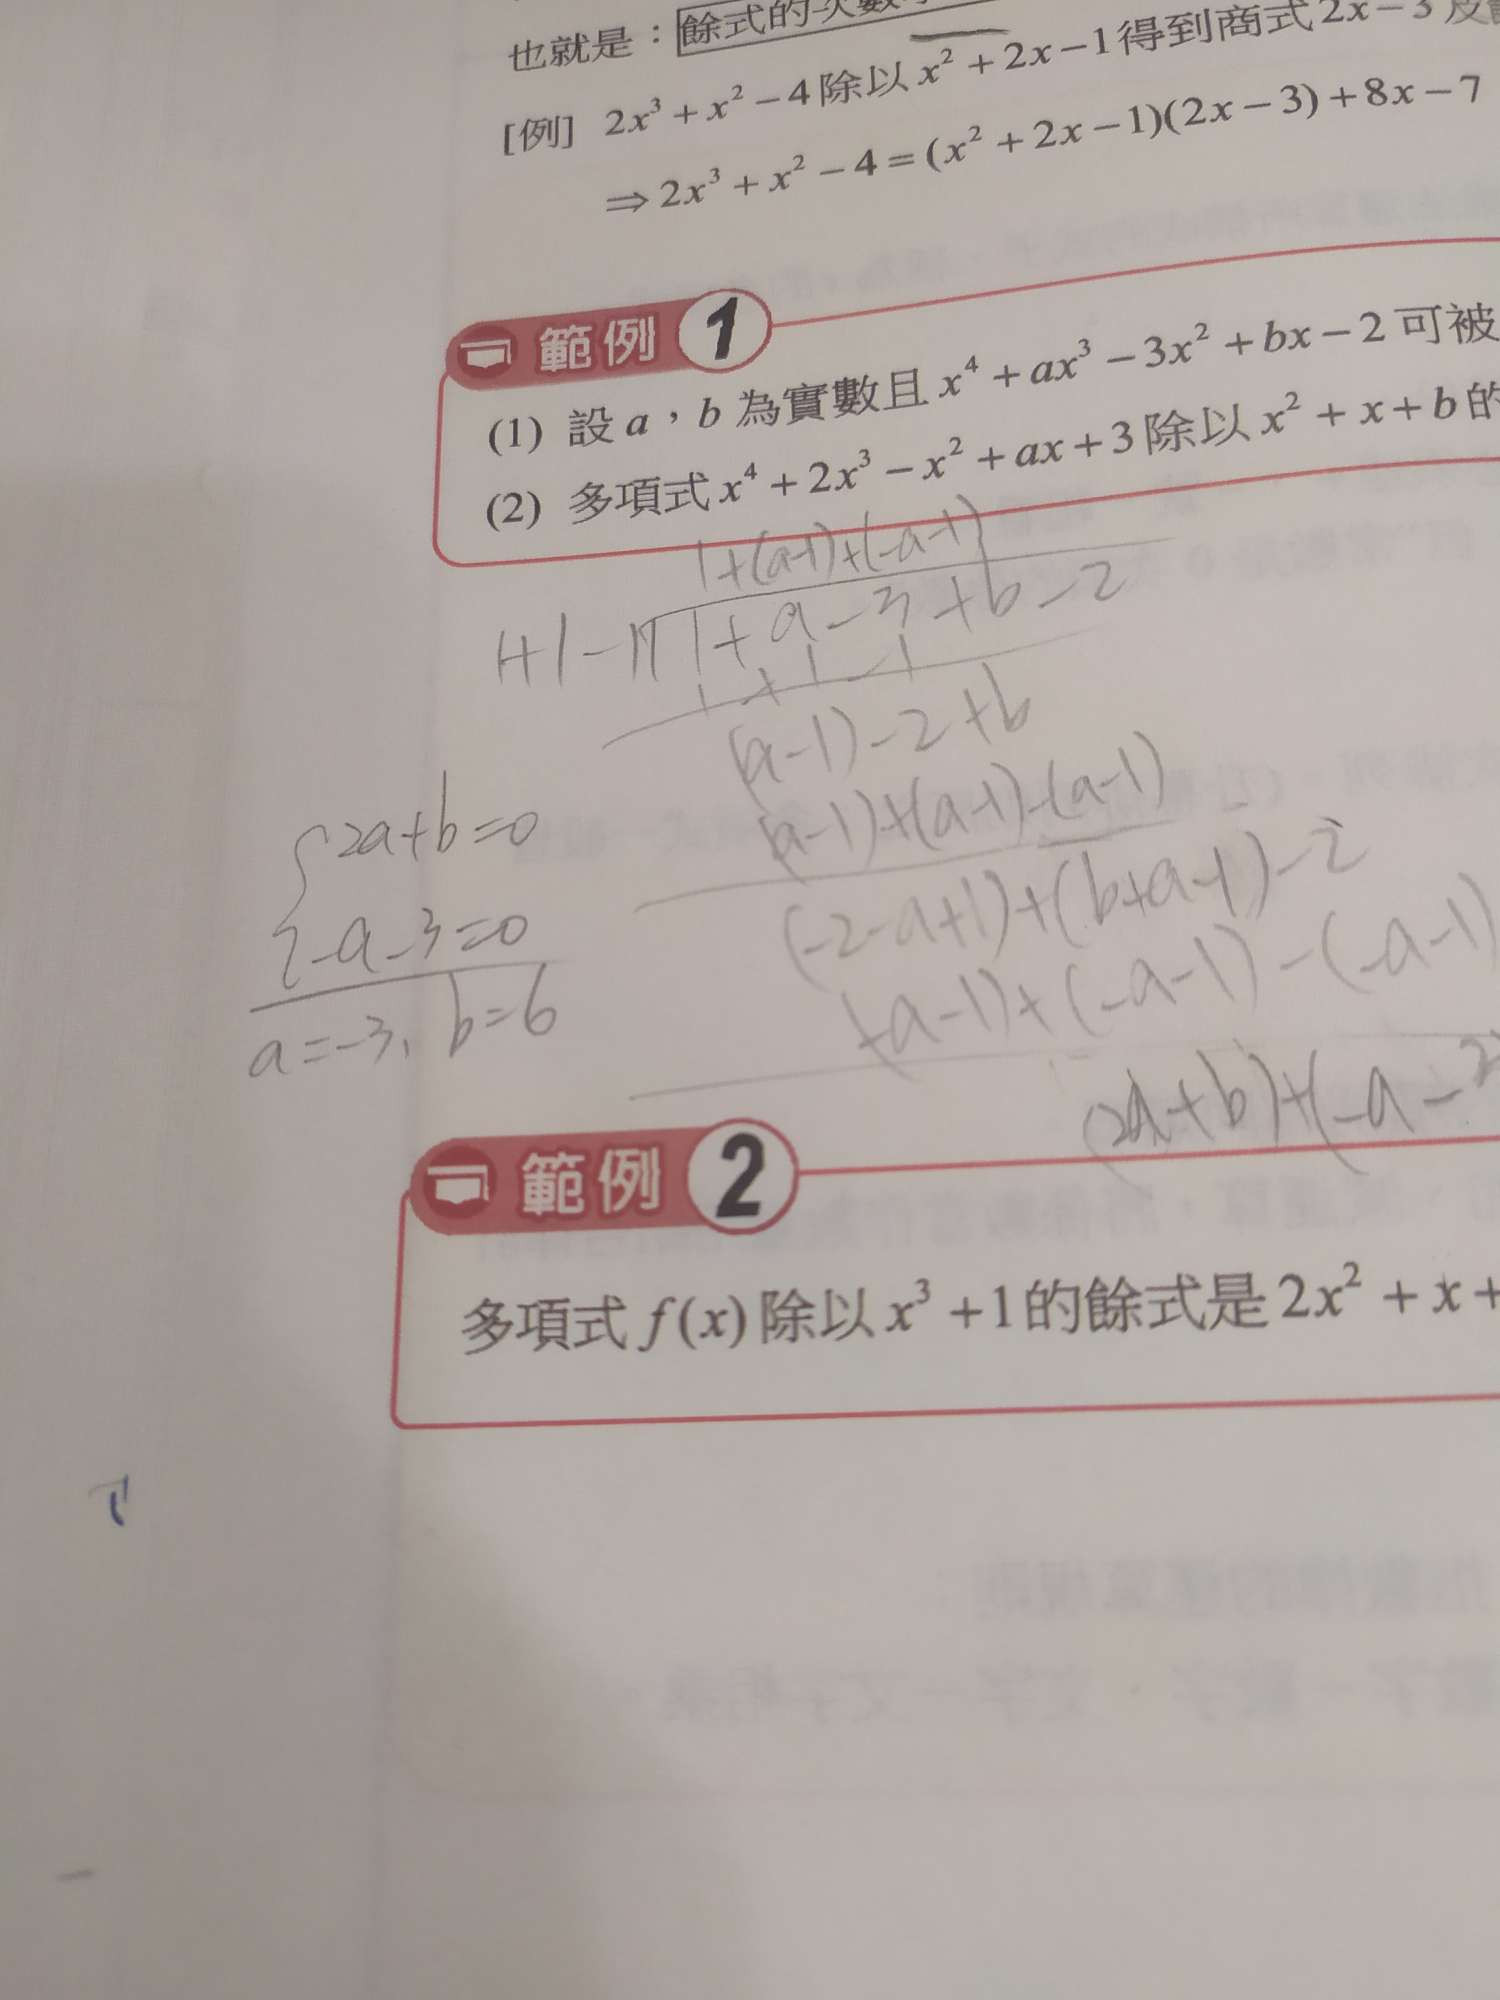 也就是：餘式的次數
[例] 2x³ + x² − 4 除以 x² + 2x − 1 得到商式 2x − 3 及
⇒ 2x³ + x² − 4 = (x² + 2x − 1)(2x − 3) + 8x − 7
範例 1
(1) 設 a，b 為實數且 x⁴ + ax³ − 3x² + bx − 2 可被
(2) 多項式 x⁴ + 2x³ − x² + ax + 3 除以 x² + x + b 的
1+(a-1)+(-a-1)
1+1-1 1+a-3+b-2
1+1-1
(a-1)-2+b
(a-1)+(a-1)-(a-1)
(-2-a+1)+(b+a-1)-2
(-a-1)+(-a-1)-(-a-1)
(2a+b)+(-a-
2a+b=0
-a-3=0
a=-3, b=6
範例 2
多項式 f(x) 除以 x³ + 1 的餘式是 2x² + x +